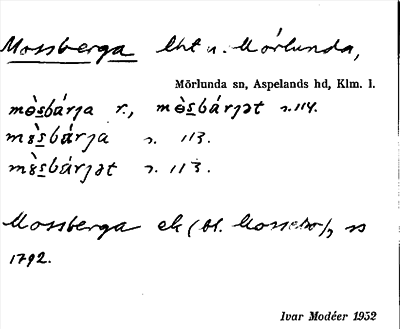 Mossberga lht u. Mörlunda,
Mörlunda sn, Aspelands hd, Klm. l.
mɵ̀sbárja r., mɵ̀sbárjət s. 114.
mɤ̀sbárja s. 113.
mɤ̀sbárjət s. 113.
Mossberga ek (bl. Mossebo), ss
1792.
Ivar Modéer 1952